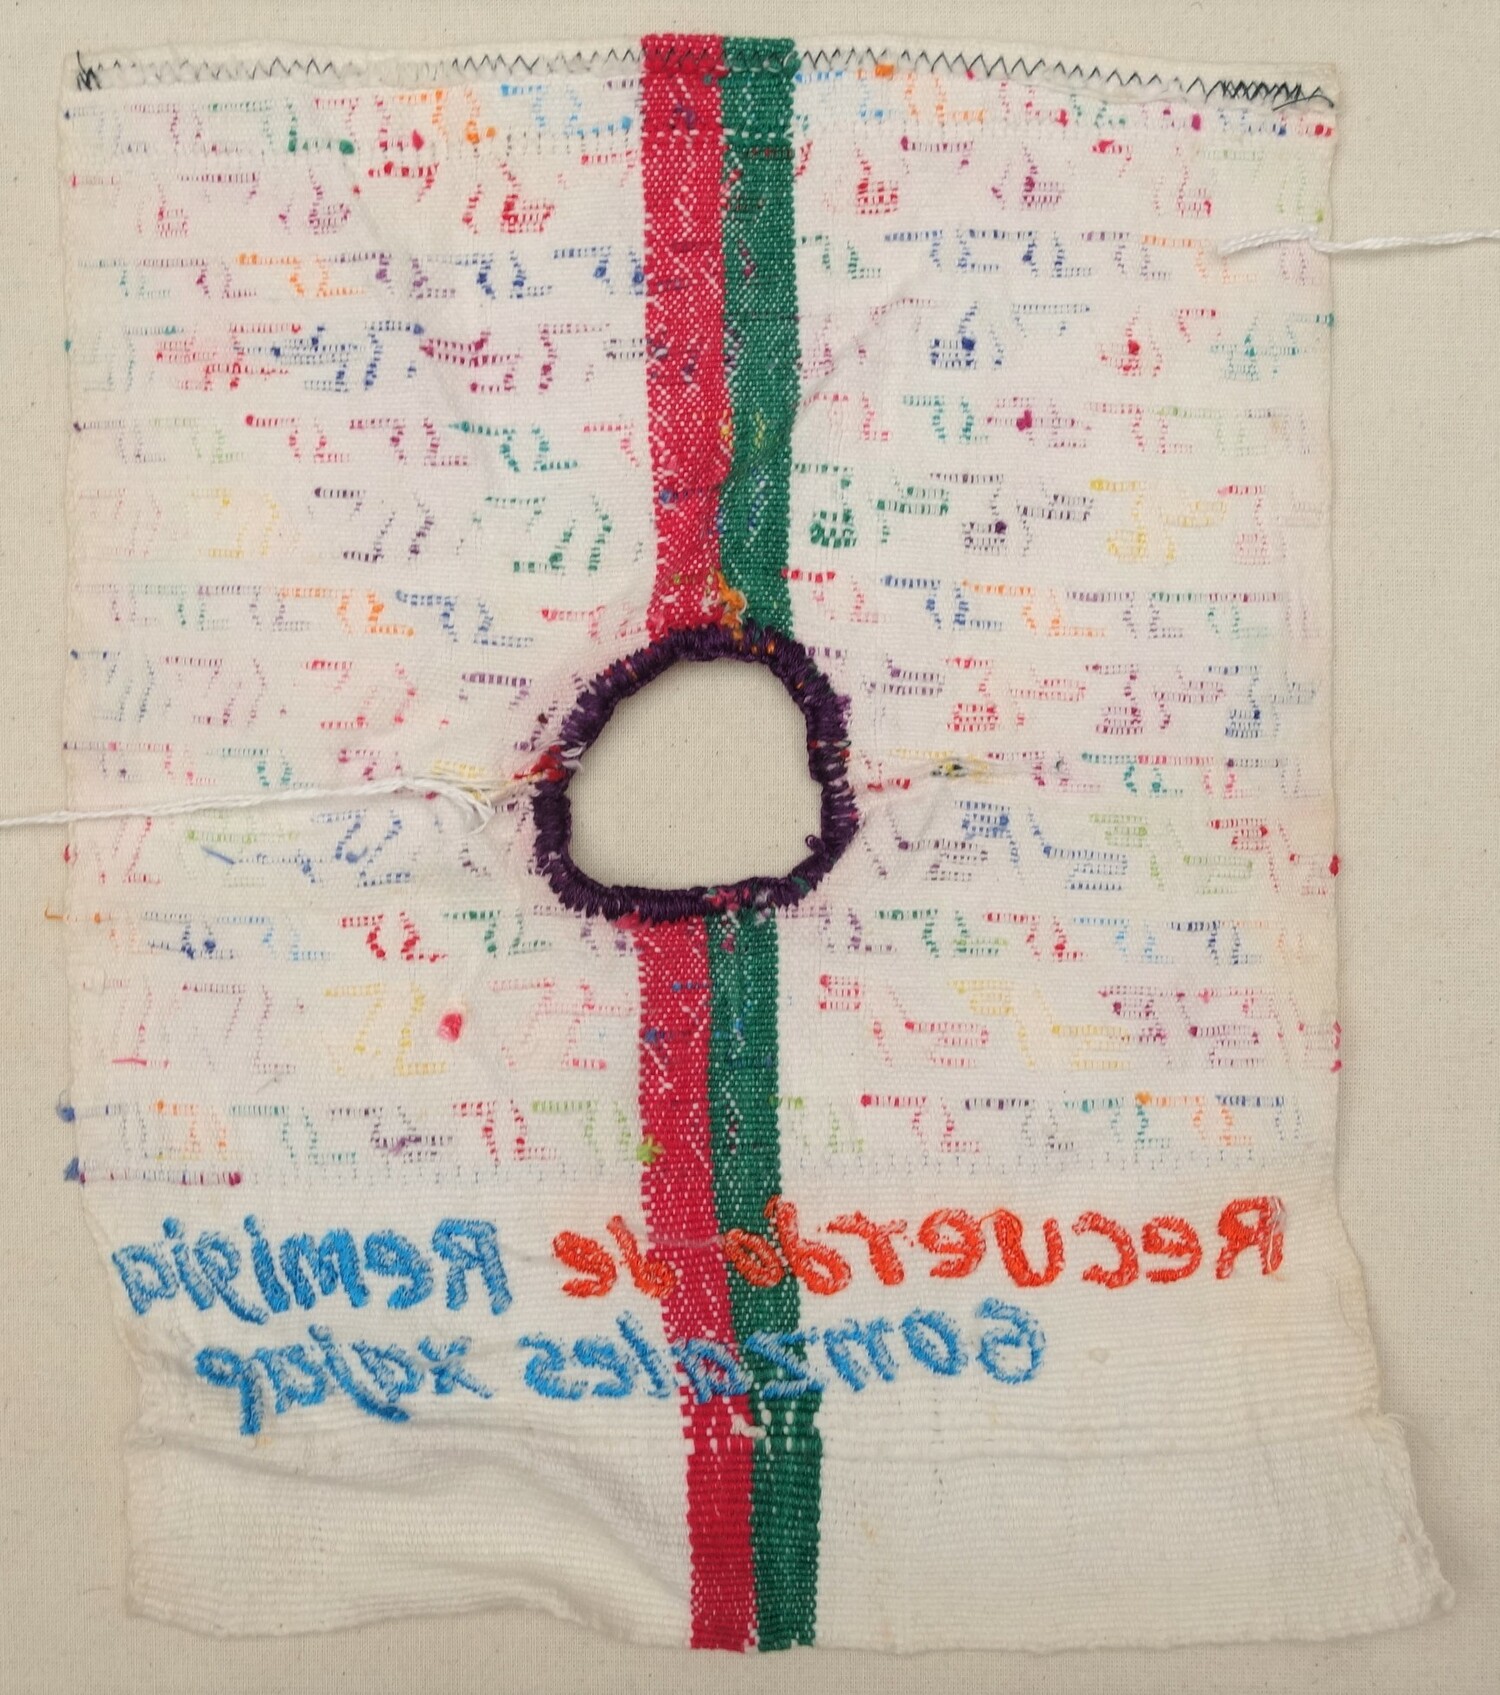 Recuerdo de Remigia
Gonzales xajap